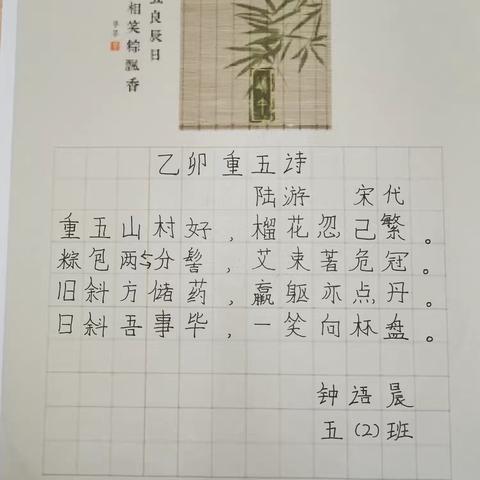 良辰日
相笑粽飄香
端午
乙卯重五诗
陆游 宋代
重五山村好，榴花忽己繁。
粽包两与分髻，艾束著危冠。
旧斜方储药，赢躯亦点丹。
日斜吾事毕，一笑向杯盘。
钟语晨
五(2)班